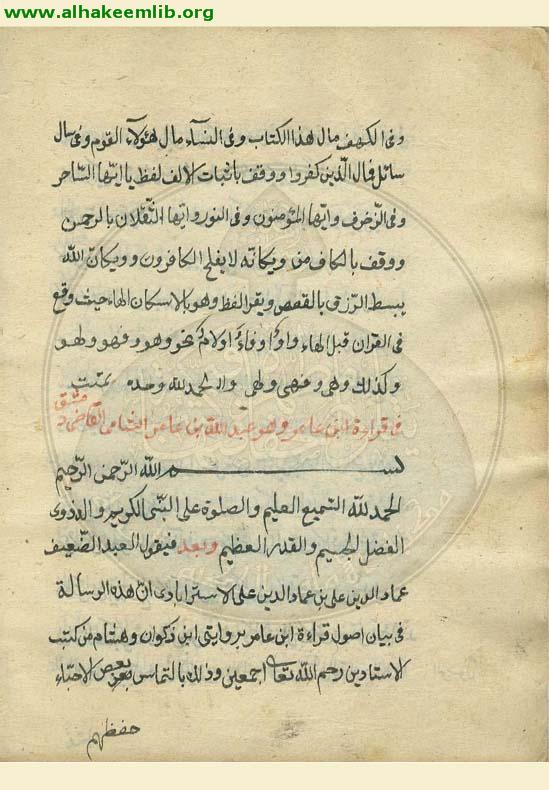 www.alhakeemlib.org
وفى الكهف مال هذا الكتاب وفى النسآء مال هؤلآء القوم وفى سال
سائل فمال الّذين كفروا ووقف باثبات الالف لفظ يا ايّها السّاحر
وفى الزّخرف وايّها المؤمنون وفى النور وايّها الثّقلان بالرحمن
ووقف بالكاف من ويكانّه لا يفلح الكافرون وويكانّ اللّه
يبسط الرّزق بالقصص ويقرا لفظ وهو بالاسكان الهاء حيث وقع
فى القران قبل الهاء واوًا وفاءً اولام نحو وهو وفهو ولهو
وكذلك وهى وفهى ولهى والحمد للّه وحده تمتت
فى قراءة ابن عامر وهو عبد اللّه بن عامر الشامى القاضى دمشق
بسم اللّه الرّحمن الرّحيم
الحمد للّه السّميع العليم والصلوة على النّبى الكريم والذوى
الفضل الجسيم والقدر العظيم وبعد فيقول العبد الضّعيف
عماد الدين على بن عماد الدين على الاسترابادى انّ هذه الرسالة
فى بيان اصول قراءة ابن عامر بروايتى ابن ذكوان وهشام من كتب
الاستادين رحم اللّه تعا اجمعين وذلك بالتماس بعض الاحبّاء
حفظهم